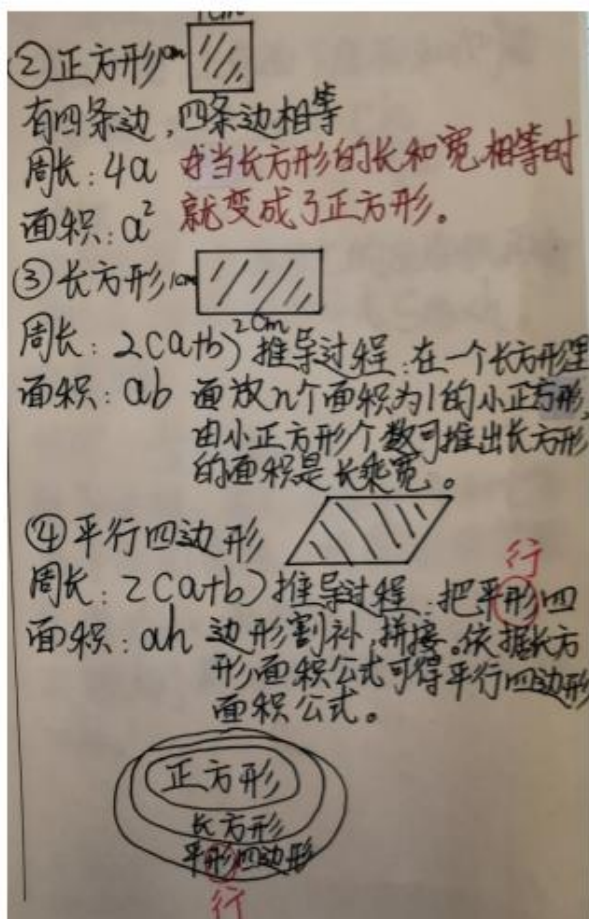 1cm
②正方形 1cm
有四条边,四条边相等
周长:4a 当长方形的长和宽相等时
面积:a² 就变成了正方形。
③长方形 1cm
2cm
周长:2(a+b) 推导过程:在一个长方形里
面积:ab 面放n个面积为1的小正方形,
由小正方形个数可推出长方形
的面积是长乘宽。
④平行四边形
行
周长:2(a+b) 推导过程:把平形四
面积:ah 边形割补,拼接。依据长方
形面积公式可得平行四边形
面积公式。
正方形
长方形
平形四边形
行